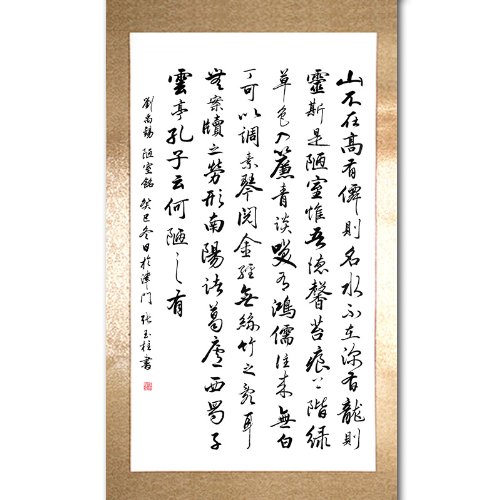 山不在高有僊則名水不在深有龍則
靈斯是陋室惟吾德馨苔痕上階緑
草色入簾青談笑有鴻儒往来無白
丁可以調素琴閱金經無絲竹之亂耳
無案牘之勞形南陽諸葛廬西蜀子
雲亭孔子云何陋之有
劉禹錫 陋室銘 癸巳冬日於津門 張玉柱書